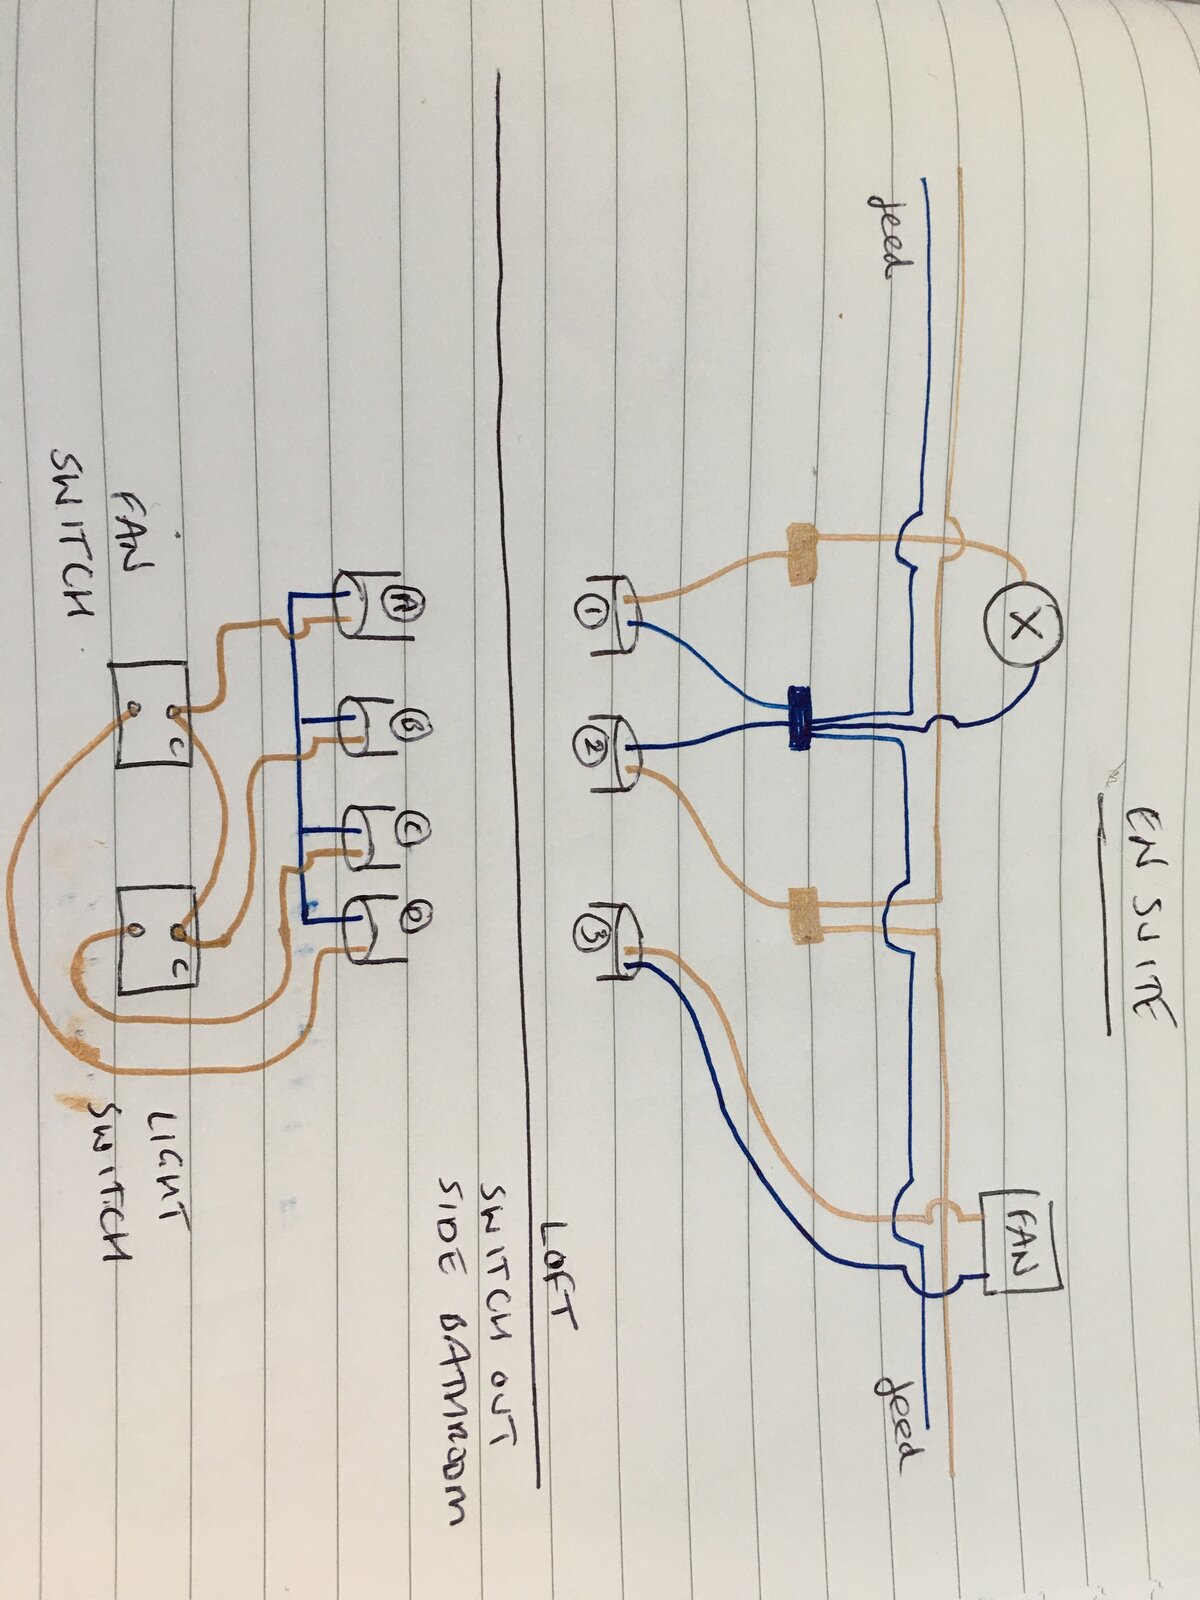 EN SUITE
X
FAN
feed
feed
1
2
3
LOFT
SWITCH OUT
SIDE BATHROOM
A
B
C
D
C
C
FAN
SWITCH
LIGHT
SWITCH